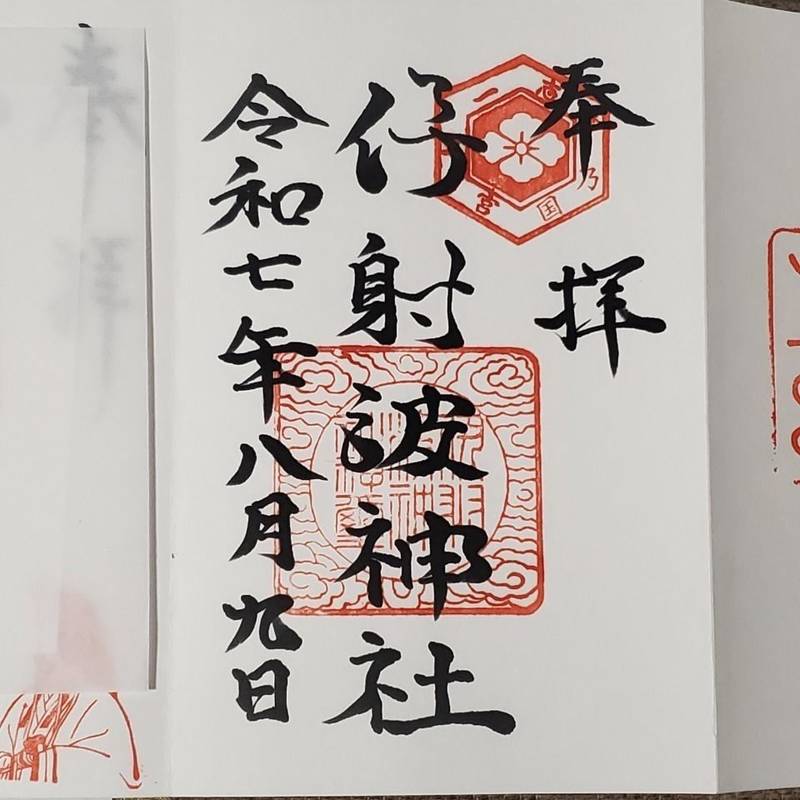 奉拝
伊射波神社
令和七年八月九日
志 乃国 一 宮